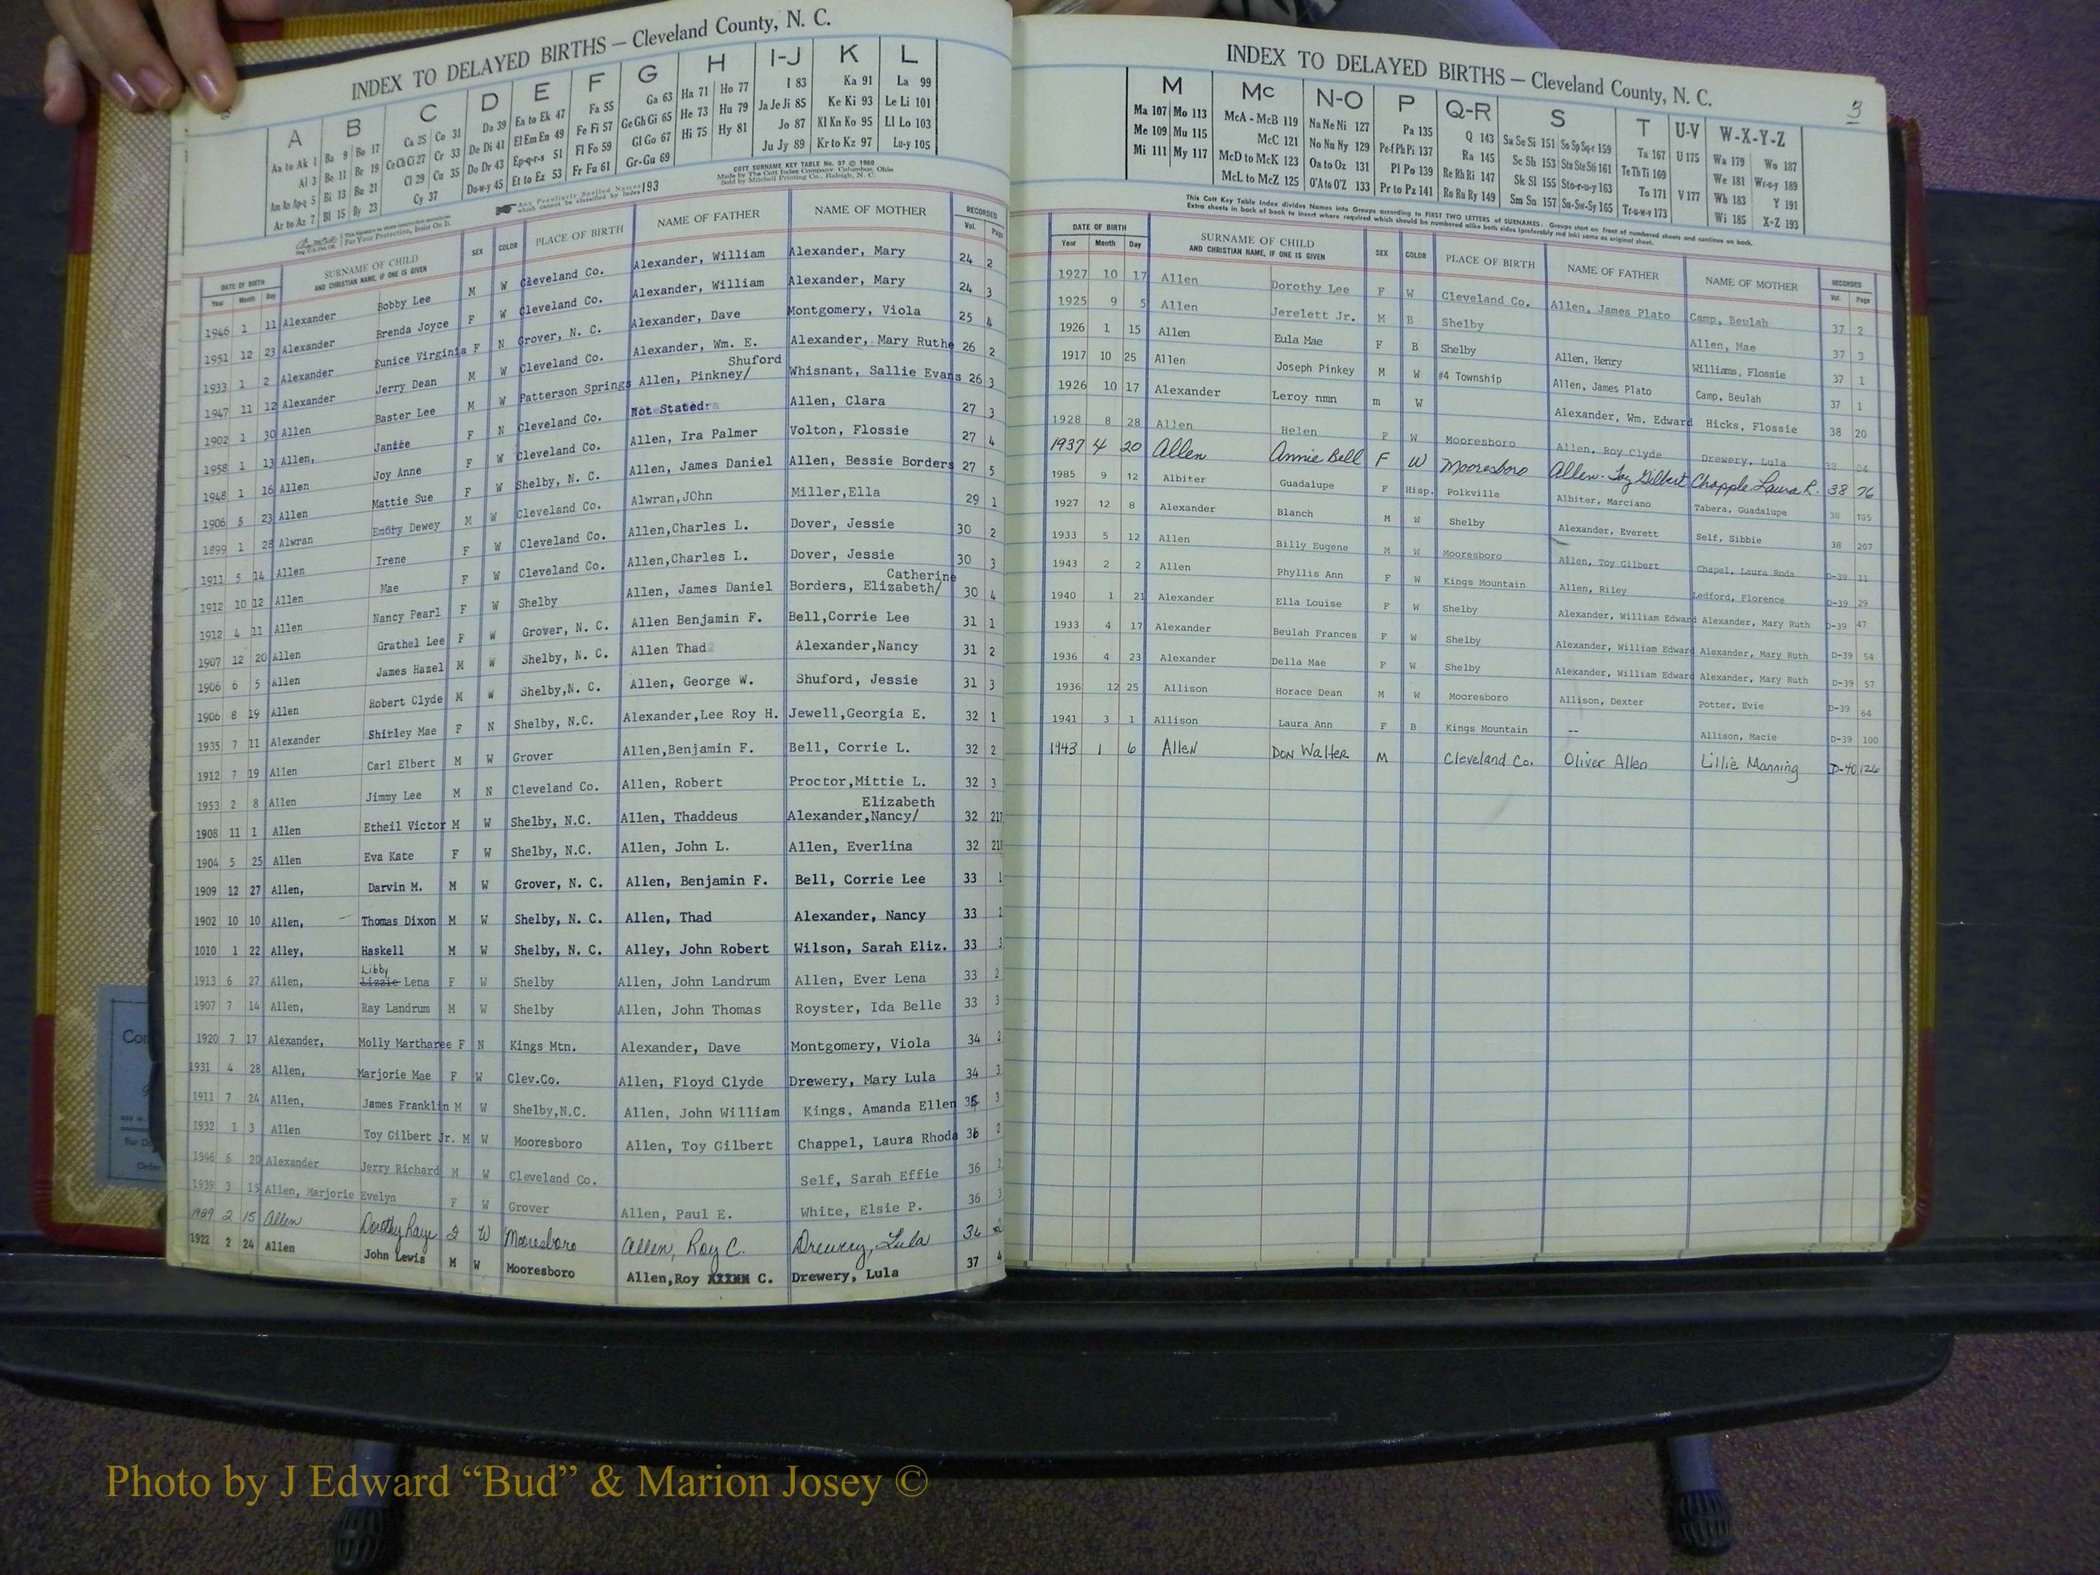 INDEX TO DELAYED BIRTHS — Cleveland County, N. C.
A B C D E F G H I-J K L
Aa to Ak 1 Ba 9 Bo 17 Ca 25 Co 31 Da 39 Ea to Ek 47 Fa 55 Ga 63 Ha 71 Ho 77 I 83 Ka 91 La 99
Al 3 Be 11 Br 19 Ce Ch Ci 27 Cr 33 De Di 41 El Em En 49 Fe Fi 57 Ge Gh Gi 65 He 73 Hu 79 Ja Je Ji 85 Ke Ki 93 Le Li 101
Am An Ap-q 5 Bi 13 Bu 21 Cl 29 Cu 35 Do Dr 43 Ep-q-r-s 51 Fl Fo 59 Gl Go 67 Hi 75 Hy 81 Jo 87 Kl Kn Ko 95 Ll Lo 103
Ar to Az 7 Bl 15 By 23 Cy 37 Du-w-y 45 Et to Ez 53 Fr Fu 61 Gr-Gu 69 Ju Jy 89 Kr to Kz 97 Lu-y 105
COTT SURNAME KEY TABLE No. 97 © 1960
Made by The Cott Index Company, Columbus, Ohio
Sold by Mitchell Printing Co., Raleigh, N. C.
Any Peculiarly Spelled Names which cannot be classified by Index 193
For Your Protection, Insist On It.
DATE OF BIRTH Year Month Day SURNAME OF CHILD AND CHRISTIAN NAME, IF ONE IS GIVEN SEX COLOR PLACE OF BIRTH NAME OF FATHER NAME OF MOTHER RECORDED Vol. Page
1946 1 11 Alexander Bobby Lee M W Cleveland Co. Alexander, William Alexander, Mary 24 2
1951 12 23 Alexander Brenda Joyce F W Cleveland Co. Alexander, William Alexander, Mary 24 3
1933 1 2 Alexander Eunice Virginia F N Grover, N. C. Alexander, Dave Montgomery, Viola 25 4
1947 11 12 Alexander Jerry Dean M W Cleveland Co. Alexander, Wm. E. Alexander, Mary Ruthe 26 2
1902 1 30 Allen Baster Lee M W Patterson Springs Allen, Pinkney/ Shuford Whisnant, Sallie Evans 26 3
1958 1 13 Allen, Janice F N Cleveland Co. Not Stated Allen, Clara 27 3
1948 1 16 Allen Joy Anne F W Cleveland Co. Allen, Ira Palmer Volton, Flossie 27 4
1906 5 23 Allen Mattie Sue F W Shelby, N. C. Allen, James Daniel Allen, Bessie Borders 27 5
1899 1 28 Alwran Emory Dewey M W Cleveland Co. Alwran, JOhn Miller,Ella 29 1
1911 5 14 Allen Irene F W Cleveland Co. Allen,Charles L. Dover, Jessie 30 2
1912 10 12 Allen Mae F W Cleveland Co. Allen,Charles L. Dover, Jessie 30 3
1912 4 11 Allen Nancy Pearl F W Shelby Allen, James Daniel Borders, Elizabeth/ Catherine 30 4
1907 12 20 Allen Grathel Lee F W Grover, N. C. Allen Benjamin F. Bell,Corrie Lee 31 1
1906 6 5 Allen James Hazel M W Shelby, N. C. Allen Thad Alexander,Nancy 31 2
1906 8 19 Allen Robert Clyde M W Shelby,N. C. Allen, George W. Shuford, Jessie 31 3
1935 7 11 Alexander Shirley Mae F N Shelby, N.C. Alexander,Lee Roy H. Jewell,Georgia E. 32 1
1912 7 19 Allen Carl Elbert M W Grover Allen,Benjamin F. Bell, Corrie L. 32 2
1953 2 8 Allen Jimmy Lee M N Cleveland Co. Allen, Robert Proctor,Mittie L. 32 3
1908 11 1 Allen Etheil Victor M W Shelby, N.C. Allen, Thaddeus Alexander,Nancy/ Elizabeth 32 217
1904 5 25 Allen Eva Kate F W Shelby, N.C. Allen, John L. Allen, Everlina 32 218
1909 12 27 Allen, Darvin M. M W Grover, N. C. Allen, Benjamin F. Bell, Corrie Lee 33 1
1902 10 10 Allen, Thomas Dixon M W Shelby, N. C. Allen, Thad Alexander, Nancy 33
1010 1 22 Alley, Haskell M W Shelby, N. C. Alley, John Robert Wilson, Sarah Eliz. 33 3
1913 6 27 Allen, Libby Lizzie Lena F W Shelby Allen, John Landrum Allen, Ever Lena 33 2
1907 7 14 Allen, Ray Landrum M W Shelby Allen, John Thomas Royster, Ida Belle 33 3
1920 7 17 Alexander, Molly Martharee F N Kings Mtn. Alexander, Dave Montgomery, Viola 34 2
1931 4 28 Allen, Marjorie Mae F W Clev.Co. Allen, Floyd Clyde Drewery, Mary Lula 34 3
1911 7 24 Allen, James Franklin M W Shelby,N.C. Allen, John William Kings, Amanda Ellen 35 3
1932 1 3 Allen Toy Gilbert Jr. M W Mooresboro Allen, Toy Gilbert Chappel, Laura Rhoda 36 2
1946 6 20 Alexander Jerry Richard M W Cleveland Co. Self, Sarah Effie 36 2
1939 3 15 Allen, Marjorie Evelyn F W Grover Allen, Paul E. White, Elsie P. 36 3
1929 2 15 Allen Dorothy Raye F W Mooresboro Allen, Roy C. Drewery, Lula 36
1922 2 24 Allen John Lewis M W Mooresboro Allen,Roy C. Drewery, Lula 37 4
INDEX TO DELAYED BIRTHS — Cleveland County, N. C.
3
M Mc N-O P Q-R S T U-V W-X-Y-Z
Ma 107 Mo 113 McA - McB 119 Na Ne Ni 127 Pa 135 Q 143 Sa Se Si 151 So Sp Sq-r 159 Ta 167 U 175 Wa 179 Wo 187
Me 109 Mu 115 McC 121 No Nu Ny 129 Pe-f Ph Pi 137 Ra 145 Sc Sh 153 Sta Ste Sti 161 Te Th Ti 169 We 181 Wr-u-y 189
Mi 111 My 117 McD to McK 123 Oa to Oz 131 Pl Po 139 Re Rh Ri 147 Sk Sl 155 Sto-r-u-y 163 To 171 V 177 Wh 183 Y 191
McL to McZ 125 O'A to O'Z 133 Pr to Pz 141 Ro Ru Ry 149 Sm Sn 157 Su-Sw-Sy 165 Tr-u-w-y 173 Wi 185 X-Z 193
This Cott Key Table Index divides Names into Groups according to FIRST TWO LETTERS of SURNAMES. Groups start on front of numbered sheets and continue on back.
Extra sheets in back of book to insert where required which should be numbered alike both sides (preferably red ink) same as original sheet.
DATE OF BIRTH Year Month Day SURNAME OF CHILD AND CHRISTIAN NAME, IF ONE IS GIVEN SEX COLOR PLACE OF BIRTH NAME OF FATHER NAME OF MOTHER RECORDED Vol. Page
1927 10 17 Allen Dorothy Lee F W Cleveland Co. Allen, James Plato Camp, Beulah 37 2
1925 9 5 Allen Jerelett Jr. M B Shelby Allen, Mae 37 3
1926 1 15 Allen Eula Mae F B Shelby Allen, Henry Williams, Flossie 37 1
1917 10 25 Allen Joseph Pinkey M W #4 Township Allen, James Plato Camp, Beulah 37 1
1926 10 17 Alexander Leroy nmn m W Alexander, Wm. Edward Hicks, Flossie 38 20
1928 8 28 Allen Helen F W Mooresboro Allen, Roy Clyde Drewery, Lula 38
1937 4 20 Allen Annie Bell F W Mooresboro Allen. Toy Gilbert Chapple Laura R. 38 76
1985 9 12 Albiter Guadalupe F Hisp. Polkville Albiter, Marciano Tabera, Guadalupe 38 195
1927 12 8 Alexander Blanch M W Shelby Alexander, Everett Self, Sibbie 38 207
1933 5 12 Allen Billy Eugene M W Mooresboro Allen, Toy Gilbert Chapel, Laura Roda D-39 11
1943 2 2 Allen Phyllis Ann F W Kings Mountain Allen, Riley Ledford, Florence D-39 29
1940 1 21 Alexander Ella Louise F W Shelby Alexander, William Edward Alexander, Mary Ruth D-39 47
1933 4 17 Alexander Beulah Frances F W Shelby Alexander, William Edward Alexander, Mary Ruth D-39 54
1936 4 23 Alexander Della Mae F W Shelby Alexander, William Edward Alexander, Mary Ruth D-39 57
1936 12 25 Allison Horace Dean M W Mooresboro Allison, Dexter Potter, Evie D-39 64
1941 3 1 Allison Laura Ann F B Kings Mountain -- Allison, Macie D-39 100
1943 1 6 Allen Don Walter M Cleveland Co. Oliver Allen Lillie Manning D-40 126
Photo by J Edward “Bud” & Marion Josey ©